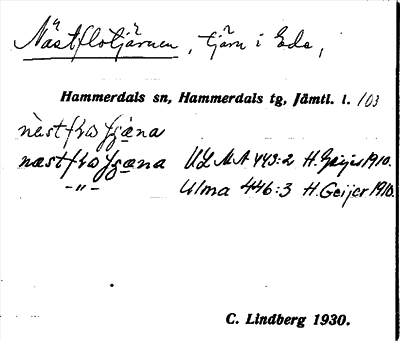 Nästflotjärnen, tjärn i Ede,
Hammerdals sn, Hammerdals tg, Jämtl. l. 103
ULMA 443:2 H. Geijer 1910.
-"- Ulma 446:3 H. Geijer 1910.
C. Lindberg 1930.